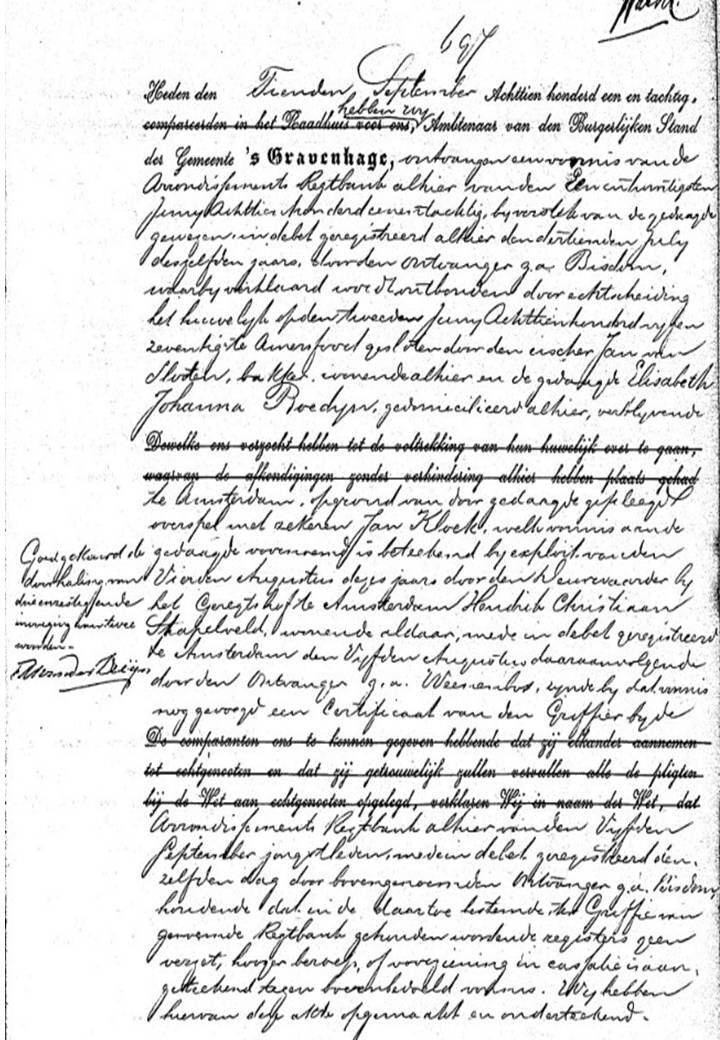 697
Heden den Tienden September Achttien honderd een en tachtig,
hebben wy
compareerden in het Raadhuis voor ons, Ambtenaar van den Burgerlijken Stand
der Gemeente 's Gravenhage, ontvangen een vonnis van de
Arrondissements Regtbank alhier van den Een en twintigsten
Juny Achttienhonderd een en tachtig, by verstek van de gedaagde
gewezen, in debet geregistreerd alhier den dertienden July
deszelfden jaars, door den ontvanger g.a. Bisdom,
waarby verklaard wordt ontbonden door echtscheiding
het huwelyk op den tweeden Juny Achttienhonderd vyf en
zeventig te Amersfoort gesloten door den eischer Jan van
Sloten, bakker, wonende alhier en de gedaagde Elisabeth
Johanna Roedyn, gedomicilieerd alhier, verblyvende
Dewelke ons verzocht hebben tot de voltrekking van hun huwelijk over te gaan,
waarvan de afkondigingen zonder verhindering alhier hebben plaats gehad
te Amsterdam, op grond van door gedaagde gepleegd
overspel met zekeren Jan Kloek, welk vonnis aan de
gedaagde voornoemd is beteekend by exploit van den
Vierden Augustus dezes jaars door den Deurwaarder by
het Geregtshof te Amsterdam Hendrik Christiaan
Stapelveld, wonende aldaar, mede in debet geregistreerd
te Amsterdam den Vyfden Augustus daaraanvolgende
door den Ontvanger g.a. zynde by dat vonnis
nog gevoegd een Certificaat van den Griffier by de
De comparanten ons te kennen gegeven hebbende dat zij elkander aannemen
tot echtgenooten en dat zij getrouwelijk zullen vervullen alle de pligten
bij de Wet aan echtgenooten opgelegd, verklaren Wij in naam der Wet, dat
Arrondissements Regtbank alhier van den Vyfden
September jongstleden, mede in debet geregistreerd den
zelfden dag door bovengenoemden Ontvanger g.a. Bisdom,
houdende dat in de daartoe bestemde ter Griffie van
genoemde Regtbank gehouden wordende registers geen
verzet, hooger beroep, of voorziening in cassatie is aan,
geteekend tegen bovenbedoeld vonnis. Wy hebben
hiervan deze akte opgemaakt en onderteekend.
Goedgekeurd de
doorhaling van
drie en zestig gedrukte
invoeging van twee
woorden.